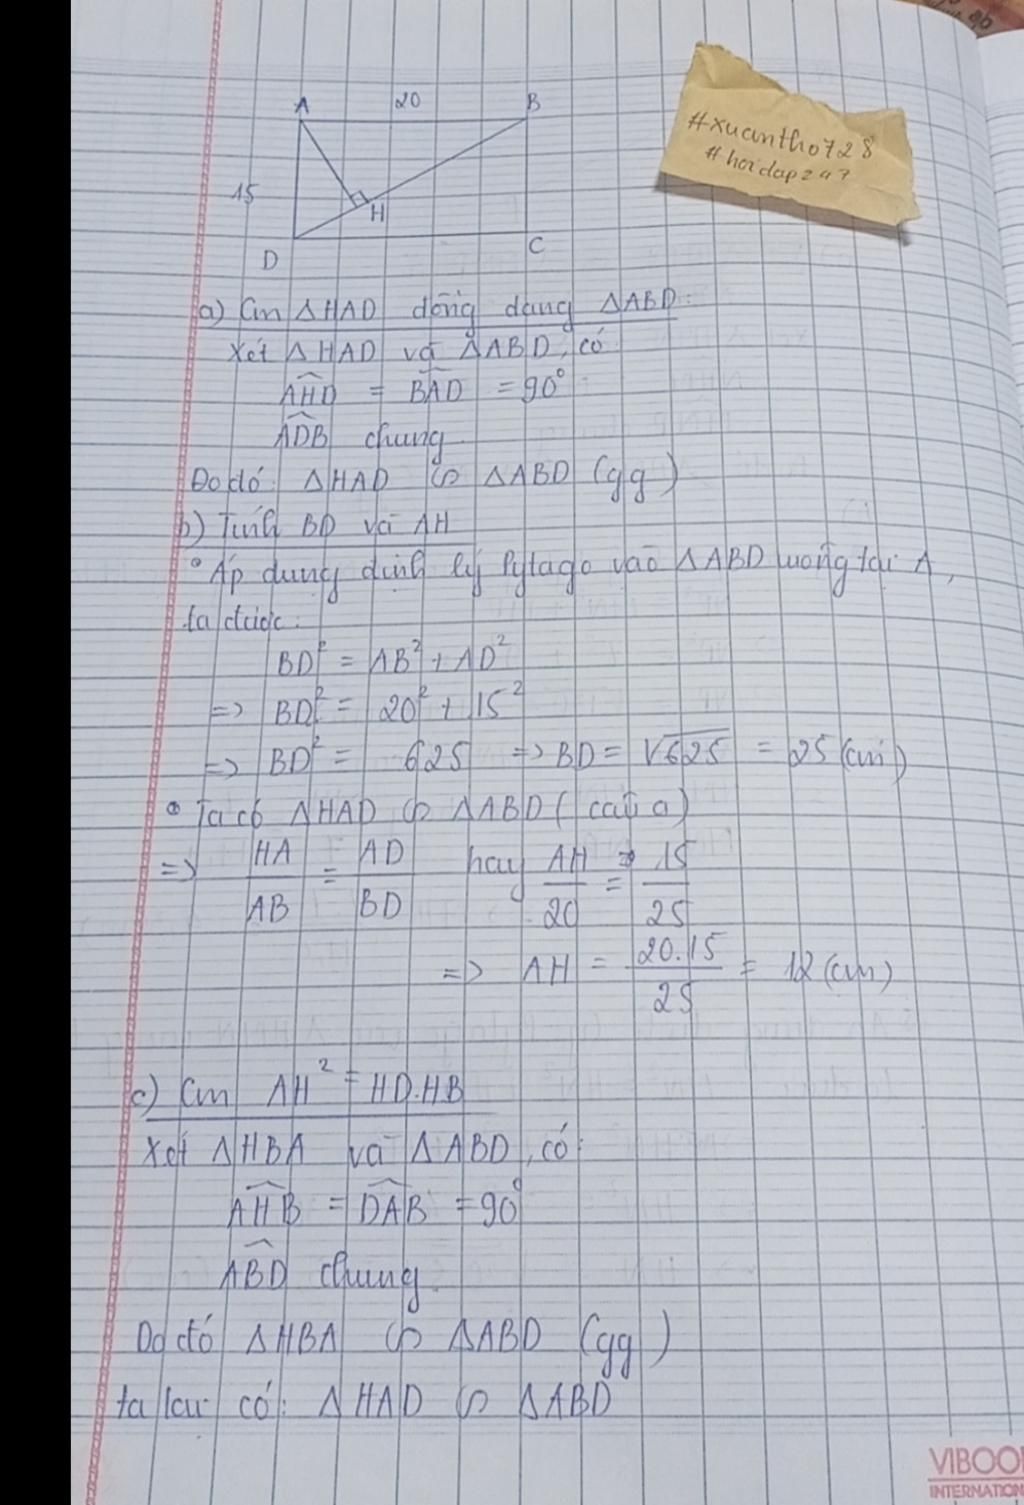 #xuantho728
#hoidap247
A 20 B
15
H
D C
a) Cm ΔHAD đồng dạng ΔABD:
Xét ΔHAD và ΔABD, có
AHD = BAD = 90°
ADB chung
Do đó: ΔHAD ∽ ΔABD (gg)
b) Tính BD và AH
• Áp dụng định lý Pytago vào ΔABD vuông tại A,
ta được:
BD² = AB² + AD²
=> BD² = 20² + 15²
=> BD² = 625 => BD = √625 = 25 (cm)
• Ta có ΔHAD ∽ ΔABD (câu a)
=> HA/AB = AD/BD hay AH/20 = 15/25
=> AH = 20.15/25 = 12 (cm)
c) Cm AH² = HD.HB
Xét ΔHBA và ΔABD, có:
AHB = DAB = 90°
ABD chung
Do đó ΔHBA ∽ ΔABD (gg)
ta lại có: ΔHAD ∽ ΔABD
VIBOO
INTERNATION